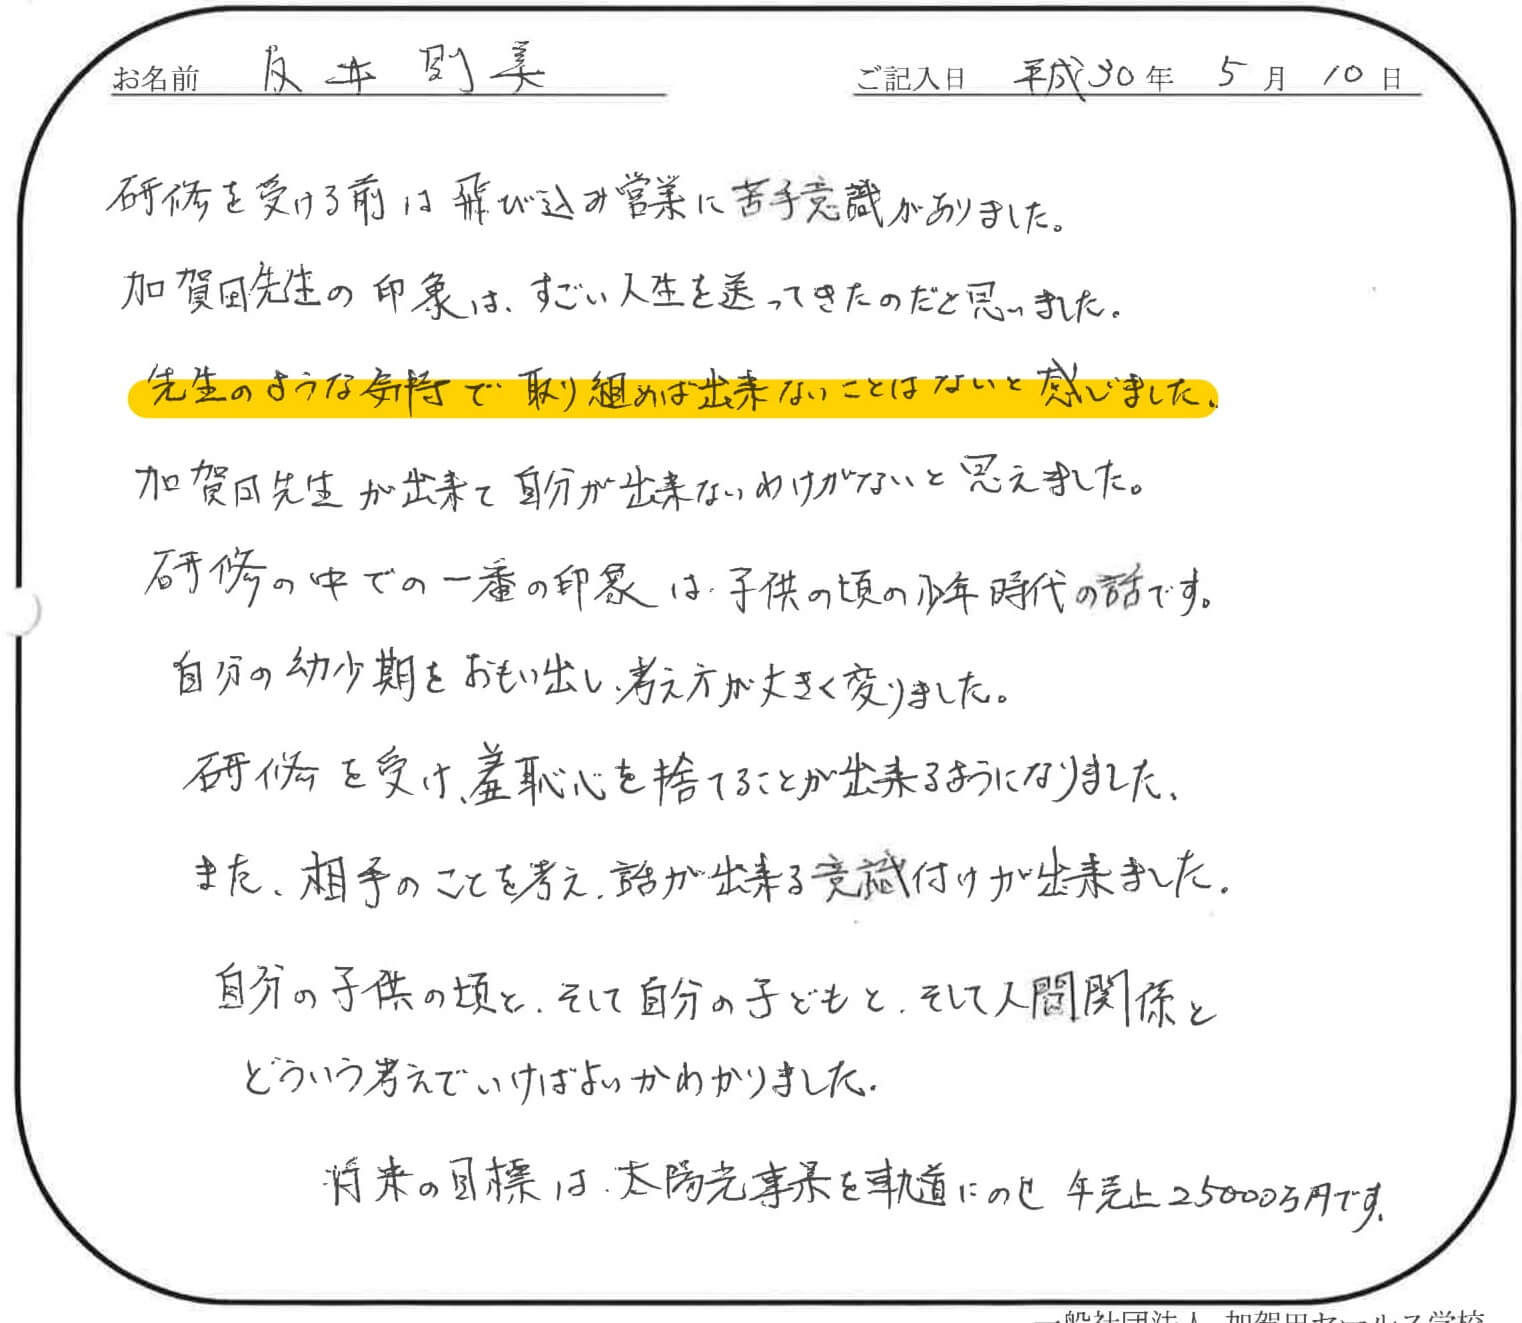 お名前 坂井則美 ご記入日 平成30年5月10日
研修を受ける前は飛び込み営業に苦手意識がありました。
加賀田先生の印象は、すごい人生を送ってきたのだと思いました。
先生のような気持で取り組めば出来ないことはないと感じました。
加賀田先生が出来て自分が出来ないわけがないと思えました。
研修の中での一番の印象は、子供の頃の少年時代の話です。
自分の幼少期をおもい出し、考え方が大きく変りました。
研修を受け、羞恥心を捨てることが出来るようになりました、
また、相手のことを考え、話が出来る意識付けが出来ました。
自分の子供の頃と、そして自分の子どもと、そして人間関係と
どういう考えでいけばよいかわかりました。
将来の目標は、太陽光事業を軌道にのせ 年売上25000万円です。
一般社団法人 加賀田セールス学校